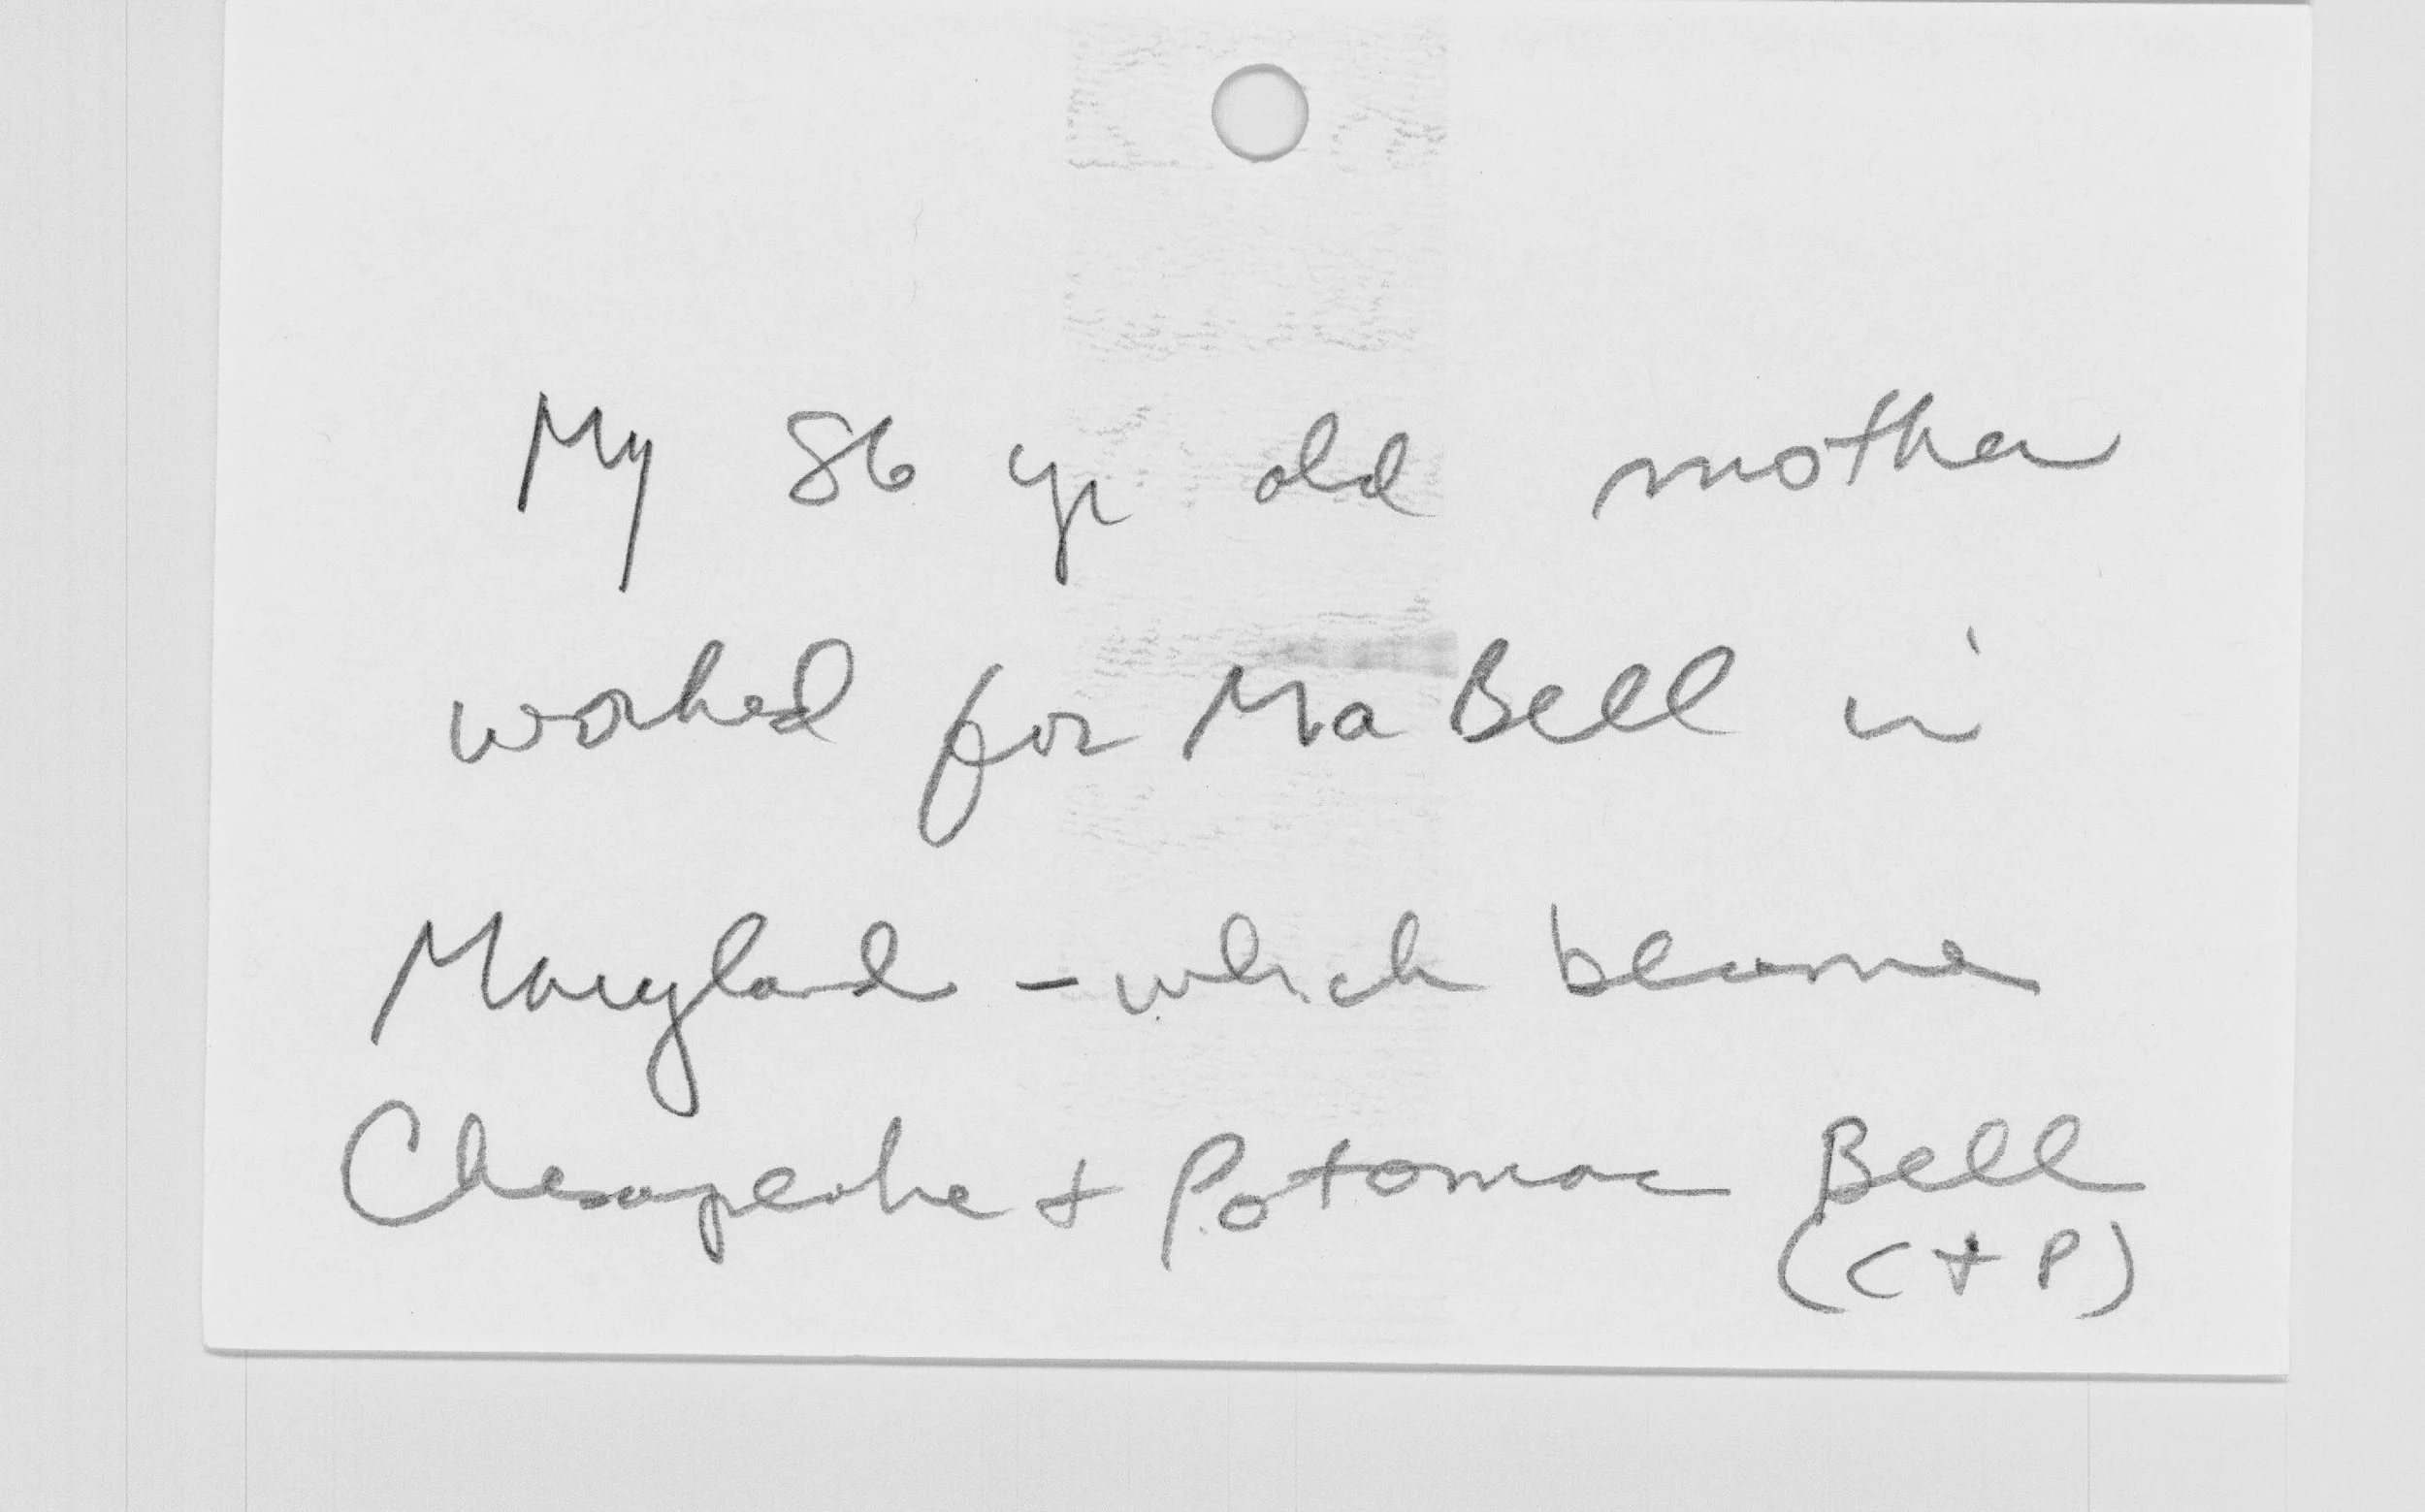 My 86 yr old mother
worked for Ma Bell in
Maryland - which became
Chesapeake + Potomac Bell
(C + P)